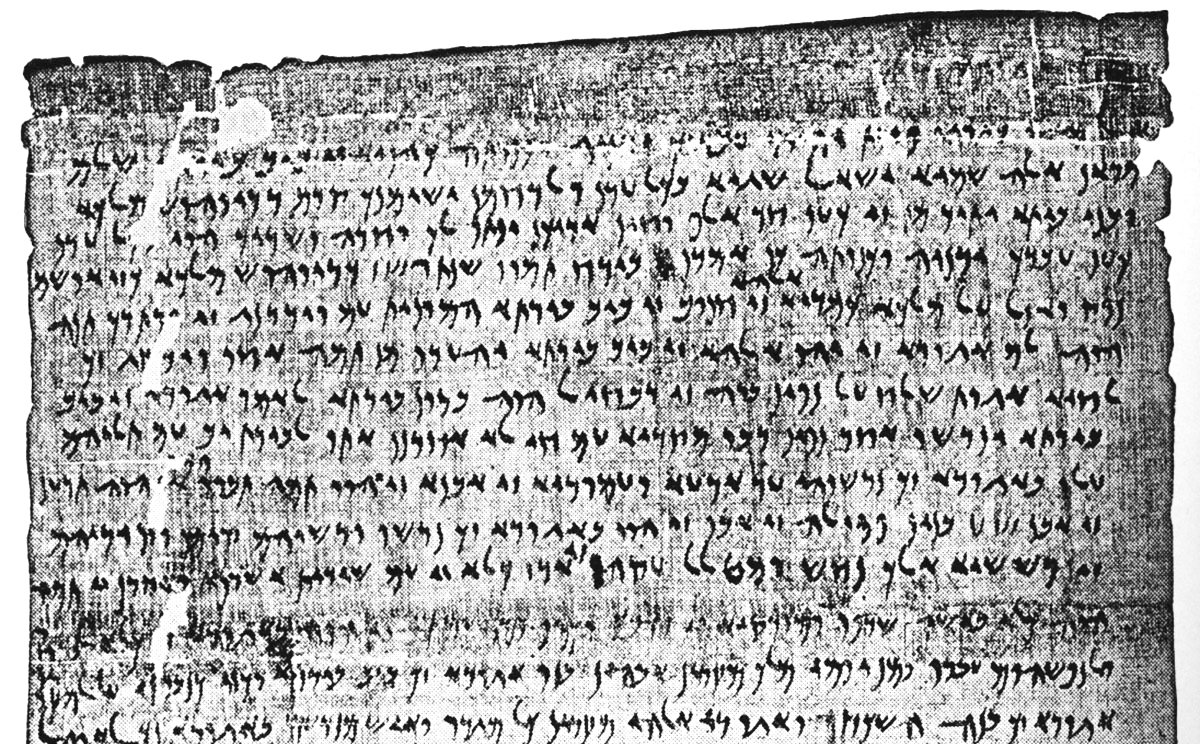 אל מראן בגוהי פחת יהוד עבדיך ידניה וכנותה כהניא זי ביב בירתא שלם
מראן אלה שמיא ישאל שגיא בכל עדן ולרחמן ישימנך קדם דריוהוש מלכא
ובני ביתא יתיר מן זי כען חד אלף וחין אריכן ינתן לך וחדה ושריר הוי בכל עדן
כען עבדך ידניה וכנותה כן אמרן בירח תמוז שנת 14 דריוהוש מלכא כזי ארשם
נפק ואזל על מלכא כמריא זי אלהא חנוב זי ביב בירתא המונית עם וידרנג זי פרתרך תנה
הוה לם אגורא זי יהו אלהא זי ביב בירתא יהעדו מן תמה אחר וידרנג זך
לחיא אגרת שלח על נפין ברה זי רבחיל הוה בסון בירתא לאמר אגורא זי ביב
בירתא ינדשו אחר נפין דבר מצריא עם חילא אחרנן אתו לבירת יב עם תליהם
עלו באגורא זך נדשוהי עד ארעא ועמודיא זי אבנא זי הוו תמה תברו המו אף הוה תרען
זי אבן 5 בנין פסילה זי אבן זי הוו באגורא זך נדשו ודשיהם קימן וציריהם
זי דששיא אלך נחש ומטלל עקהן זי ארז כלא זי עם שירית אשרנא ואחרן זי תמה
הוה כלא באשתא שרפו ומזרקיא זי זהבא וכסף ומנדעמתא זי הוה באגורא זך כלא לקחו
ולנפשהום עבדו ומן יומי מלך מצרין אבהין בנו אגורא זך ביב בירתא וכזי כנבוזי על למצרין
אגורא זך בנה השכחה ואגורי אלהי מצרין כל מגרו ואיש מנדעם באגורא זך לא חבל